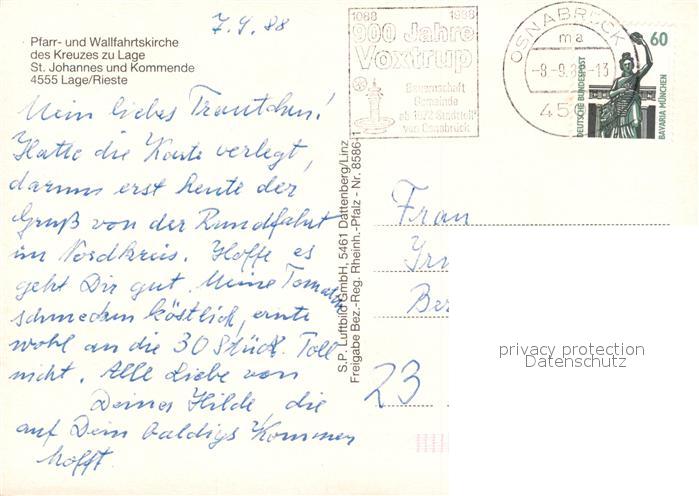 7.9.88
Pfarr- und Wallfahrtskirche
des Kreuzes zu Lage
St. Johannes und Kommende
4555 Lage/Rieste
Mein liebes Trautchen!
Hatte die Karte verlegt,
darum erst heute der
Gruß von der Rundfahrt
im Nordkreis. Hoffe es
geht Dir gut. Meine Tomaten
schmecken köstlich, ernte
wohl an die 30 Stück. Toll
nicht. Alle Liebe von
Deiner Hilde, die
auf Dein baldigs Kommen
hofft.
1088 1988
900 Jahre
Voxtrup
Bauernschaft
Gemeinde
ab 1972 Stadtteil
von Osnabrück
OSNABRÜCK
ma
-8.-9.88-13
45
60
DEUTSCHE BUNDESPOST
BAVARIA MÜNCHEN
S.P. Luftbild GmbH, 5461 Dattenberg/Linz
Freigabe Bez.-Reg. Rheinh.-Pfalz - Nr. 8586-1
Frau
Ir
Be
23
privacy protection
Datenschutz